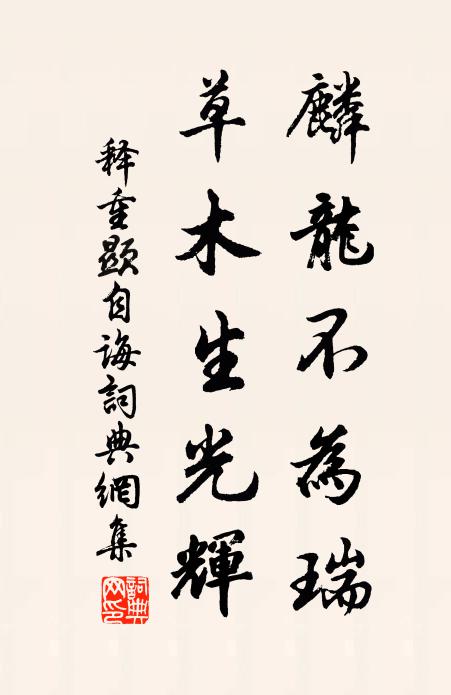 麟龍不為瑞
草木生光輝
释重顯自诲詞典網集
詞典网印